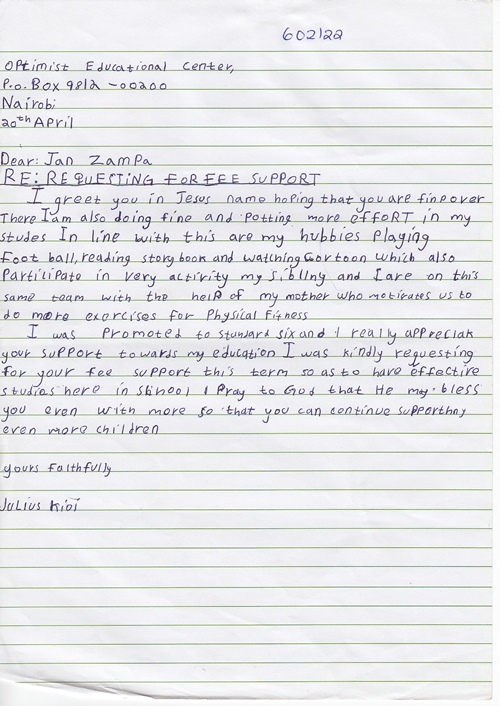 602122
Optimist Educational Center,
P.o. Box 9812 - 00200
Nairobi
20th April
Dear: Jan Zampa
RE: REQUESTING FOR FEE SUPPORT
I greet you in Jesus name hoping that you are fine over
There I am also doing fine and potting more effort in my
studes In line with this are my hubbies Playing
Foot ball, reading story book and watching Cartoon which also
Partilipate in very activity my sibling and I are on this
same team with the help of my mother who motivates us to
do more exercises for Physical Fitness
I was Promoted to standard six and I really
your support towards my education I was kindly requesting
for your fee support this term so as to have effective
studies here in I Pray to God that He may bless
you even with more so that you can continue
even more children
yours Faithfully
Julius